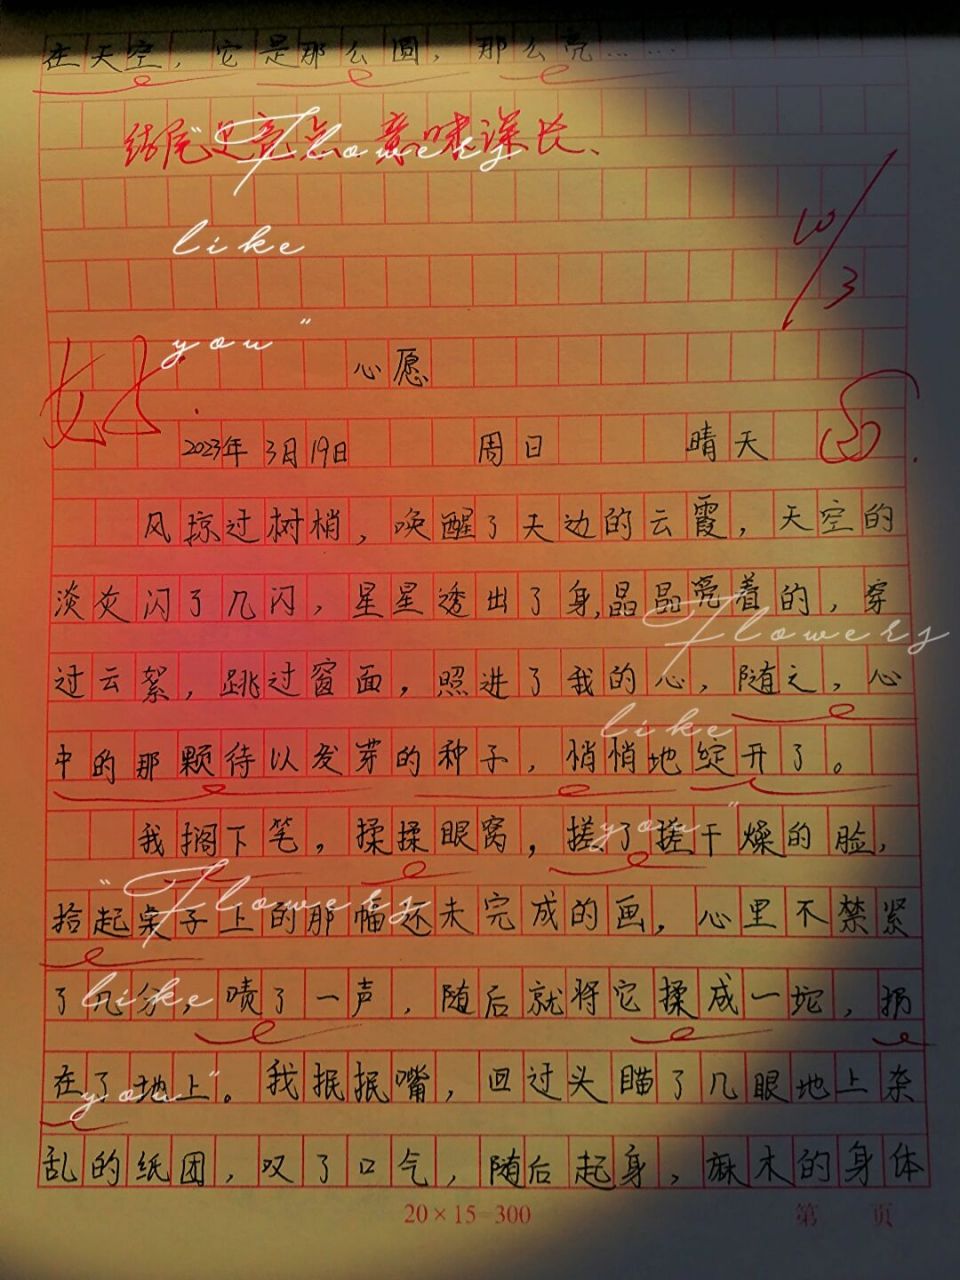 在天空，它是那么圆，那么亮……
结尾是亮点.意味深长、
"Flowers
like
you"
10/3
好.
心愿
2023年3月19日 周日 晴天
风掠过树梢，唤醒了天边的云霞，天空的
淡炎闪了几闪，星星透出了身,晶晶亮着的，穿
"Flowers
过云絮，跳过窗面，照进了我的心，随之，心
like
中的那颗待以发芽的种子，悄悄地绽开了。
you"
我搁下笔，揉揉眼窝，搓了搓干燥的脸，
"Flowers
拾起桌子上的那幅还未完成的画，心里不禁紧
like
了几分，啧了一声，随后就将它揉成一坨，扔
you"
在了地上。我抿抿嘴，回过头瞄了几眼地上杂
乱的纸团，叹了口气，随后起身，麻木的身体
20×15=300
第 页